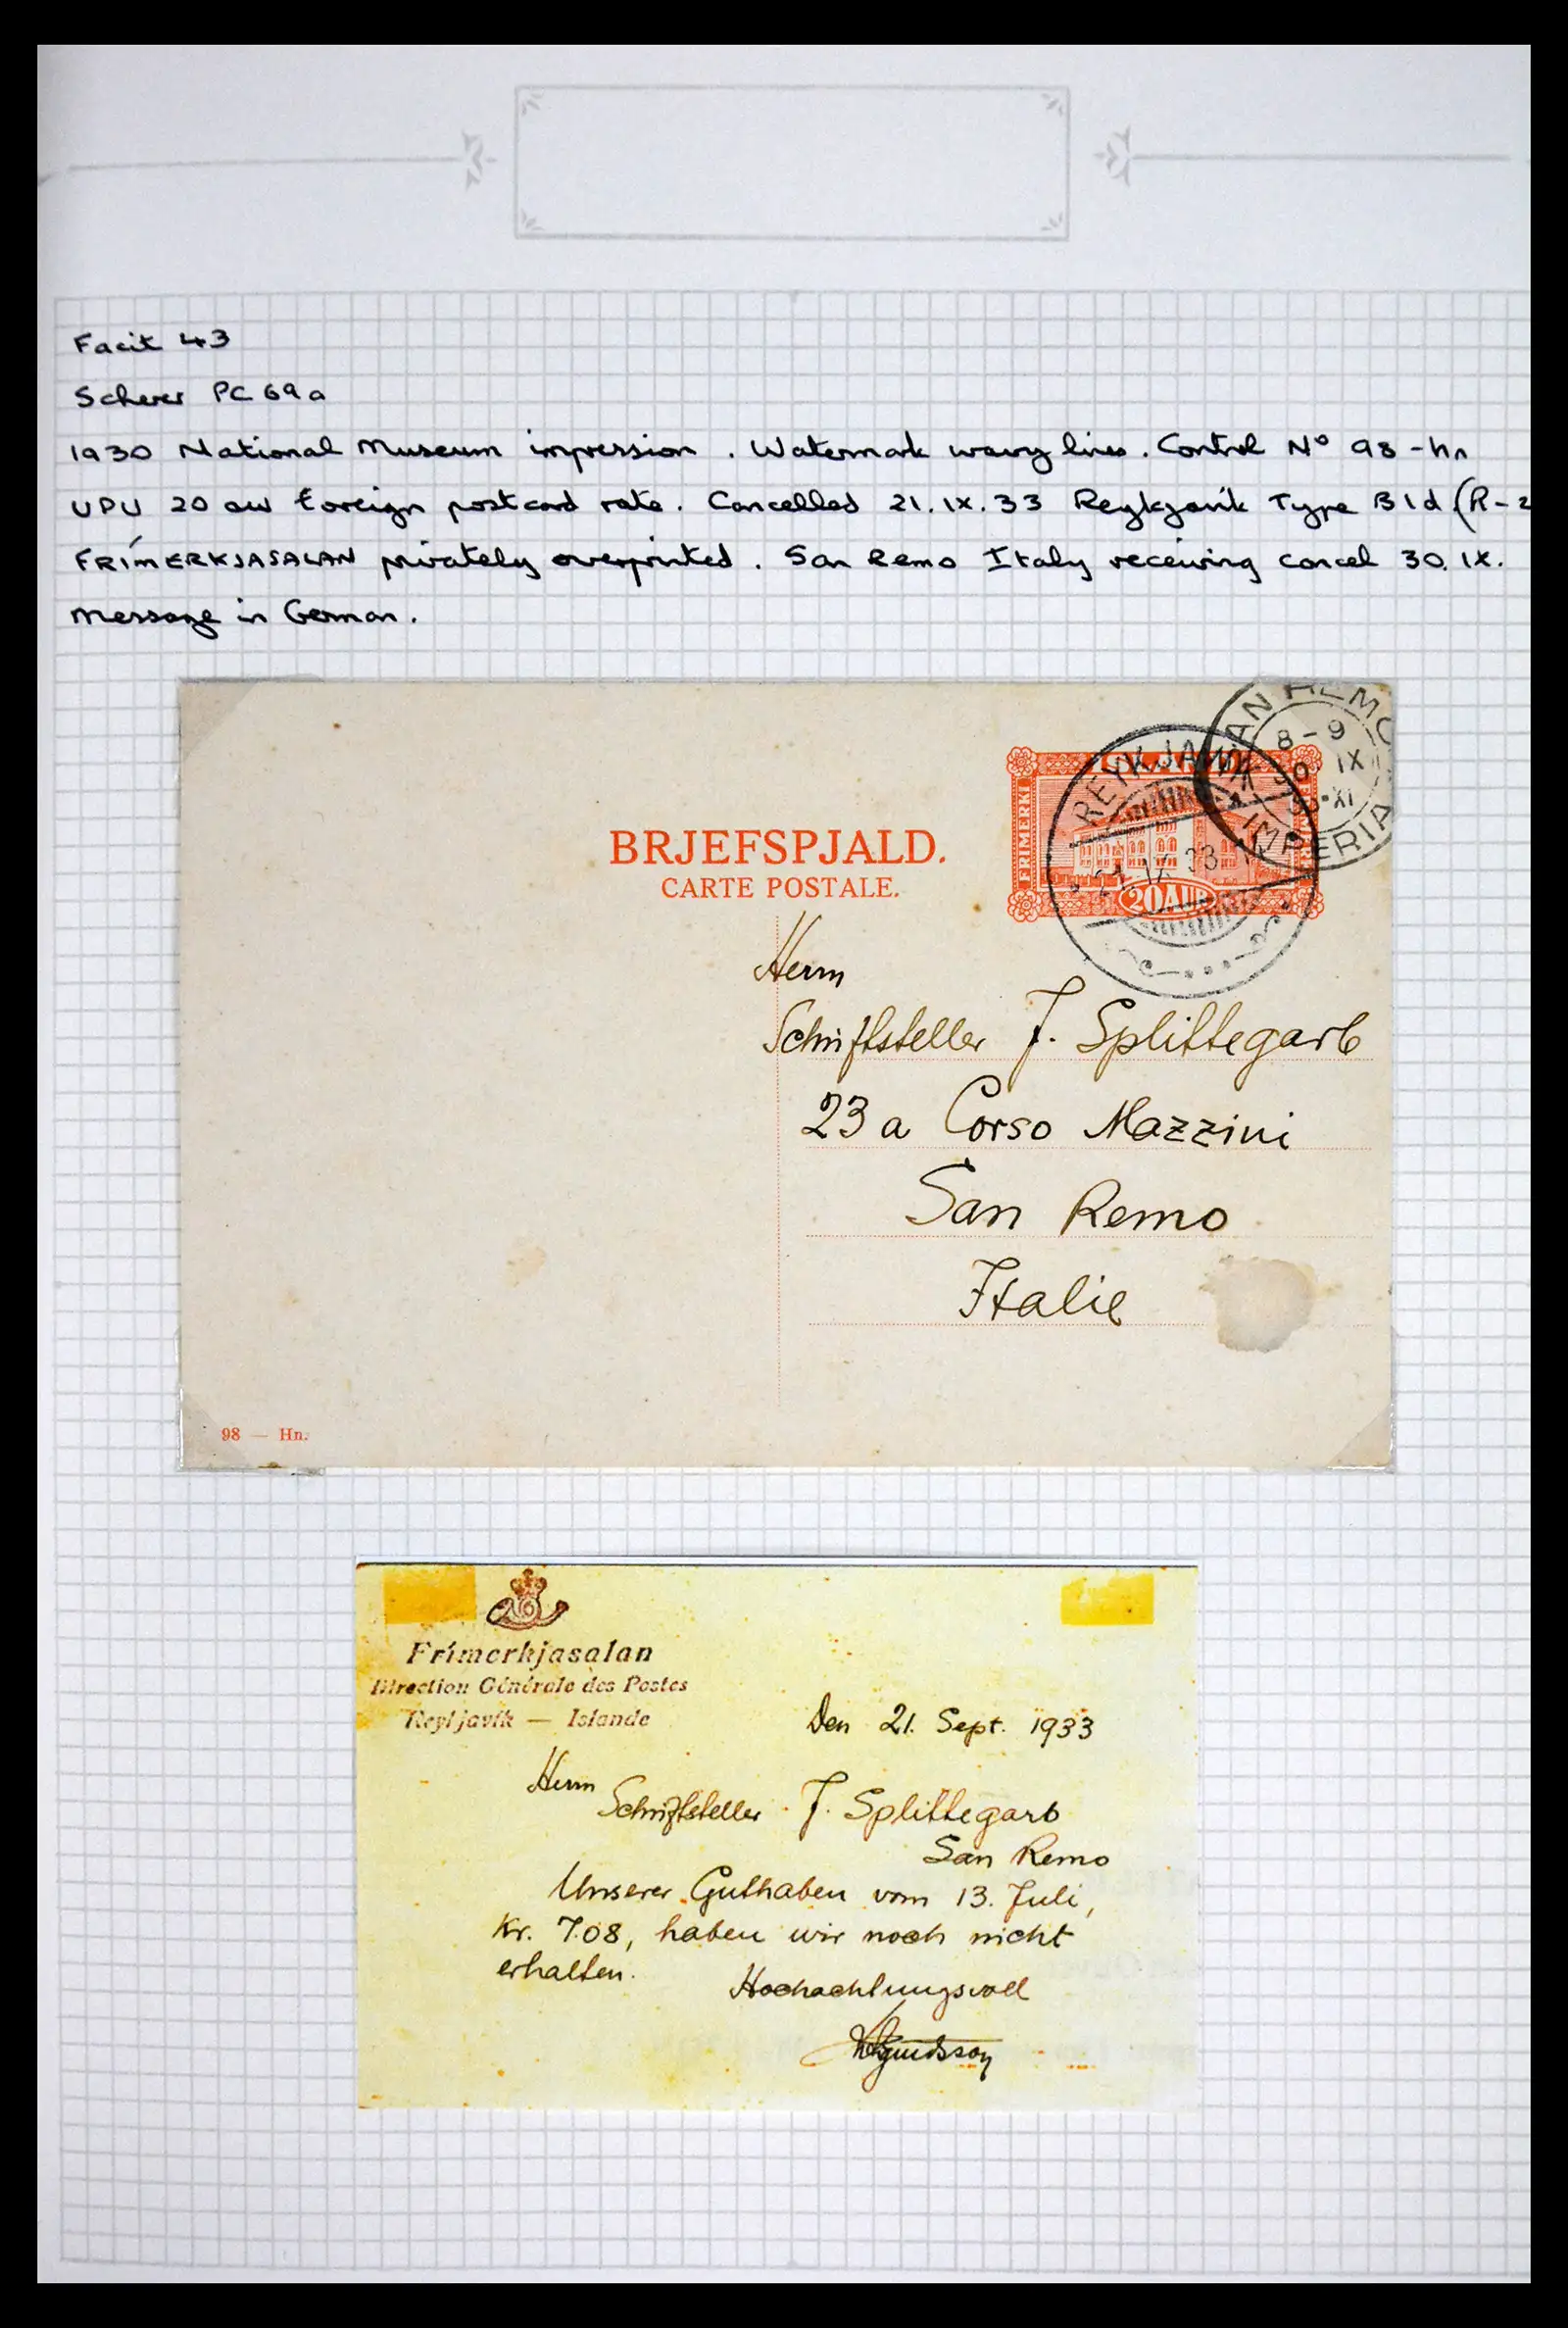 Facit 43
Scherer PC 69a
1930 National Museum impression. Watermark wavy lines. Control Nº 98-hn
UPU 20 aur foreign postcard rate. Cancelled 21.IX.33 Reykjavik Type B1d (R-2
FRÍMERKJASALAN privately overprinted. San Remo Italy receiving cancel 30.IX.
Message in German.
SAN REMO
8-9
IX
XI
IMPERIA
REYKJAVÍK
21.IX.33
FRIMERKI
20 AUR
BRJEFSPJALD.
CARTE POSTALE.
Herrn
Schriftsteller J. Splittegarb
23a Corso Mazzini
San Remo
Italie
98 — Hn.
Frímerkjasalan
Direction Générale des Postes
Reykjavík — Islande
Den 21. Sept. 1933
Herrn
Schriftsteller J. Splittegarb
San Remo
Unserer Guthaben vom 13. Juli,
Kr. 7.08, haben wir noch nicht
erhalten.
Hochachtungsvoll